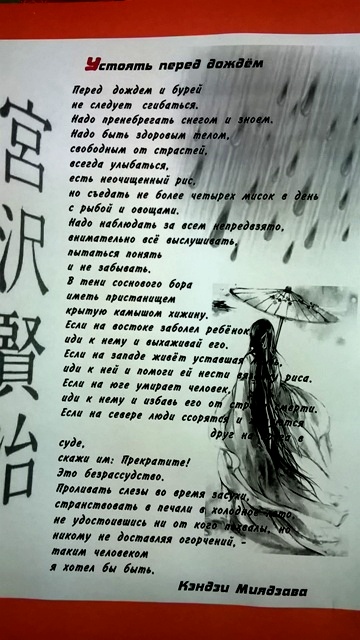 Устоять перед дождём
Перед дождем и бурей
не следует сгибаться.
Надо пренебрегать снегом и зноем.
Надо быть здоровым телом,
свободным от страстей,
всегда улыбаться,
есть неочищенный рис,
но съедать не более четырех мисок в день
с рыбой и овощами.
Надо наблюдать за всем непредвзято,
внимательно всё выслушивать,
пытаться понять
и не забывать.
В тени соснового бора
иметь пристанищем
крытую камышом хижину.
Если на востоке заболел ребёнок,
иди к нему и выхаживай его.
Если на западе живёт уставшая
иди к ней и помоги ей нести риса.
Если на юге умирает человек,
иди к нему и избавь его от смерти.
Если на севере люди ссорятся и
друг на в
суде,
скажи им: Прекратите!
Это безрассудство.
Проливать слезы во время засухи,
странствовать в печали в холодное лето,
не удостоившись ни от кого похвалы, но
никому не доставляя огорчений, -
таким человеком
я хотел бы быть.
Кэндзи Миядзава
宮沢賢治